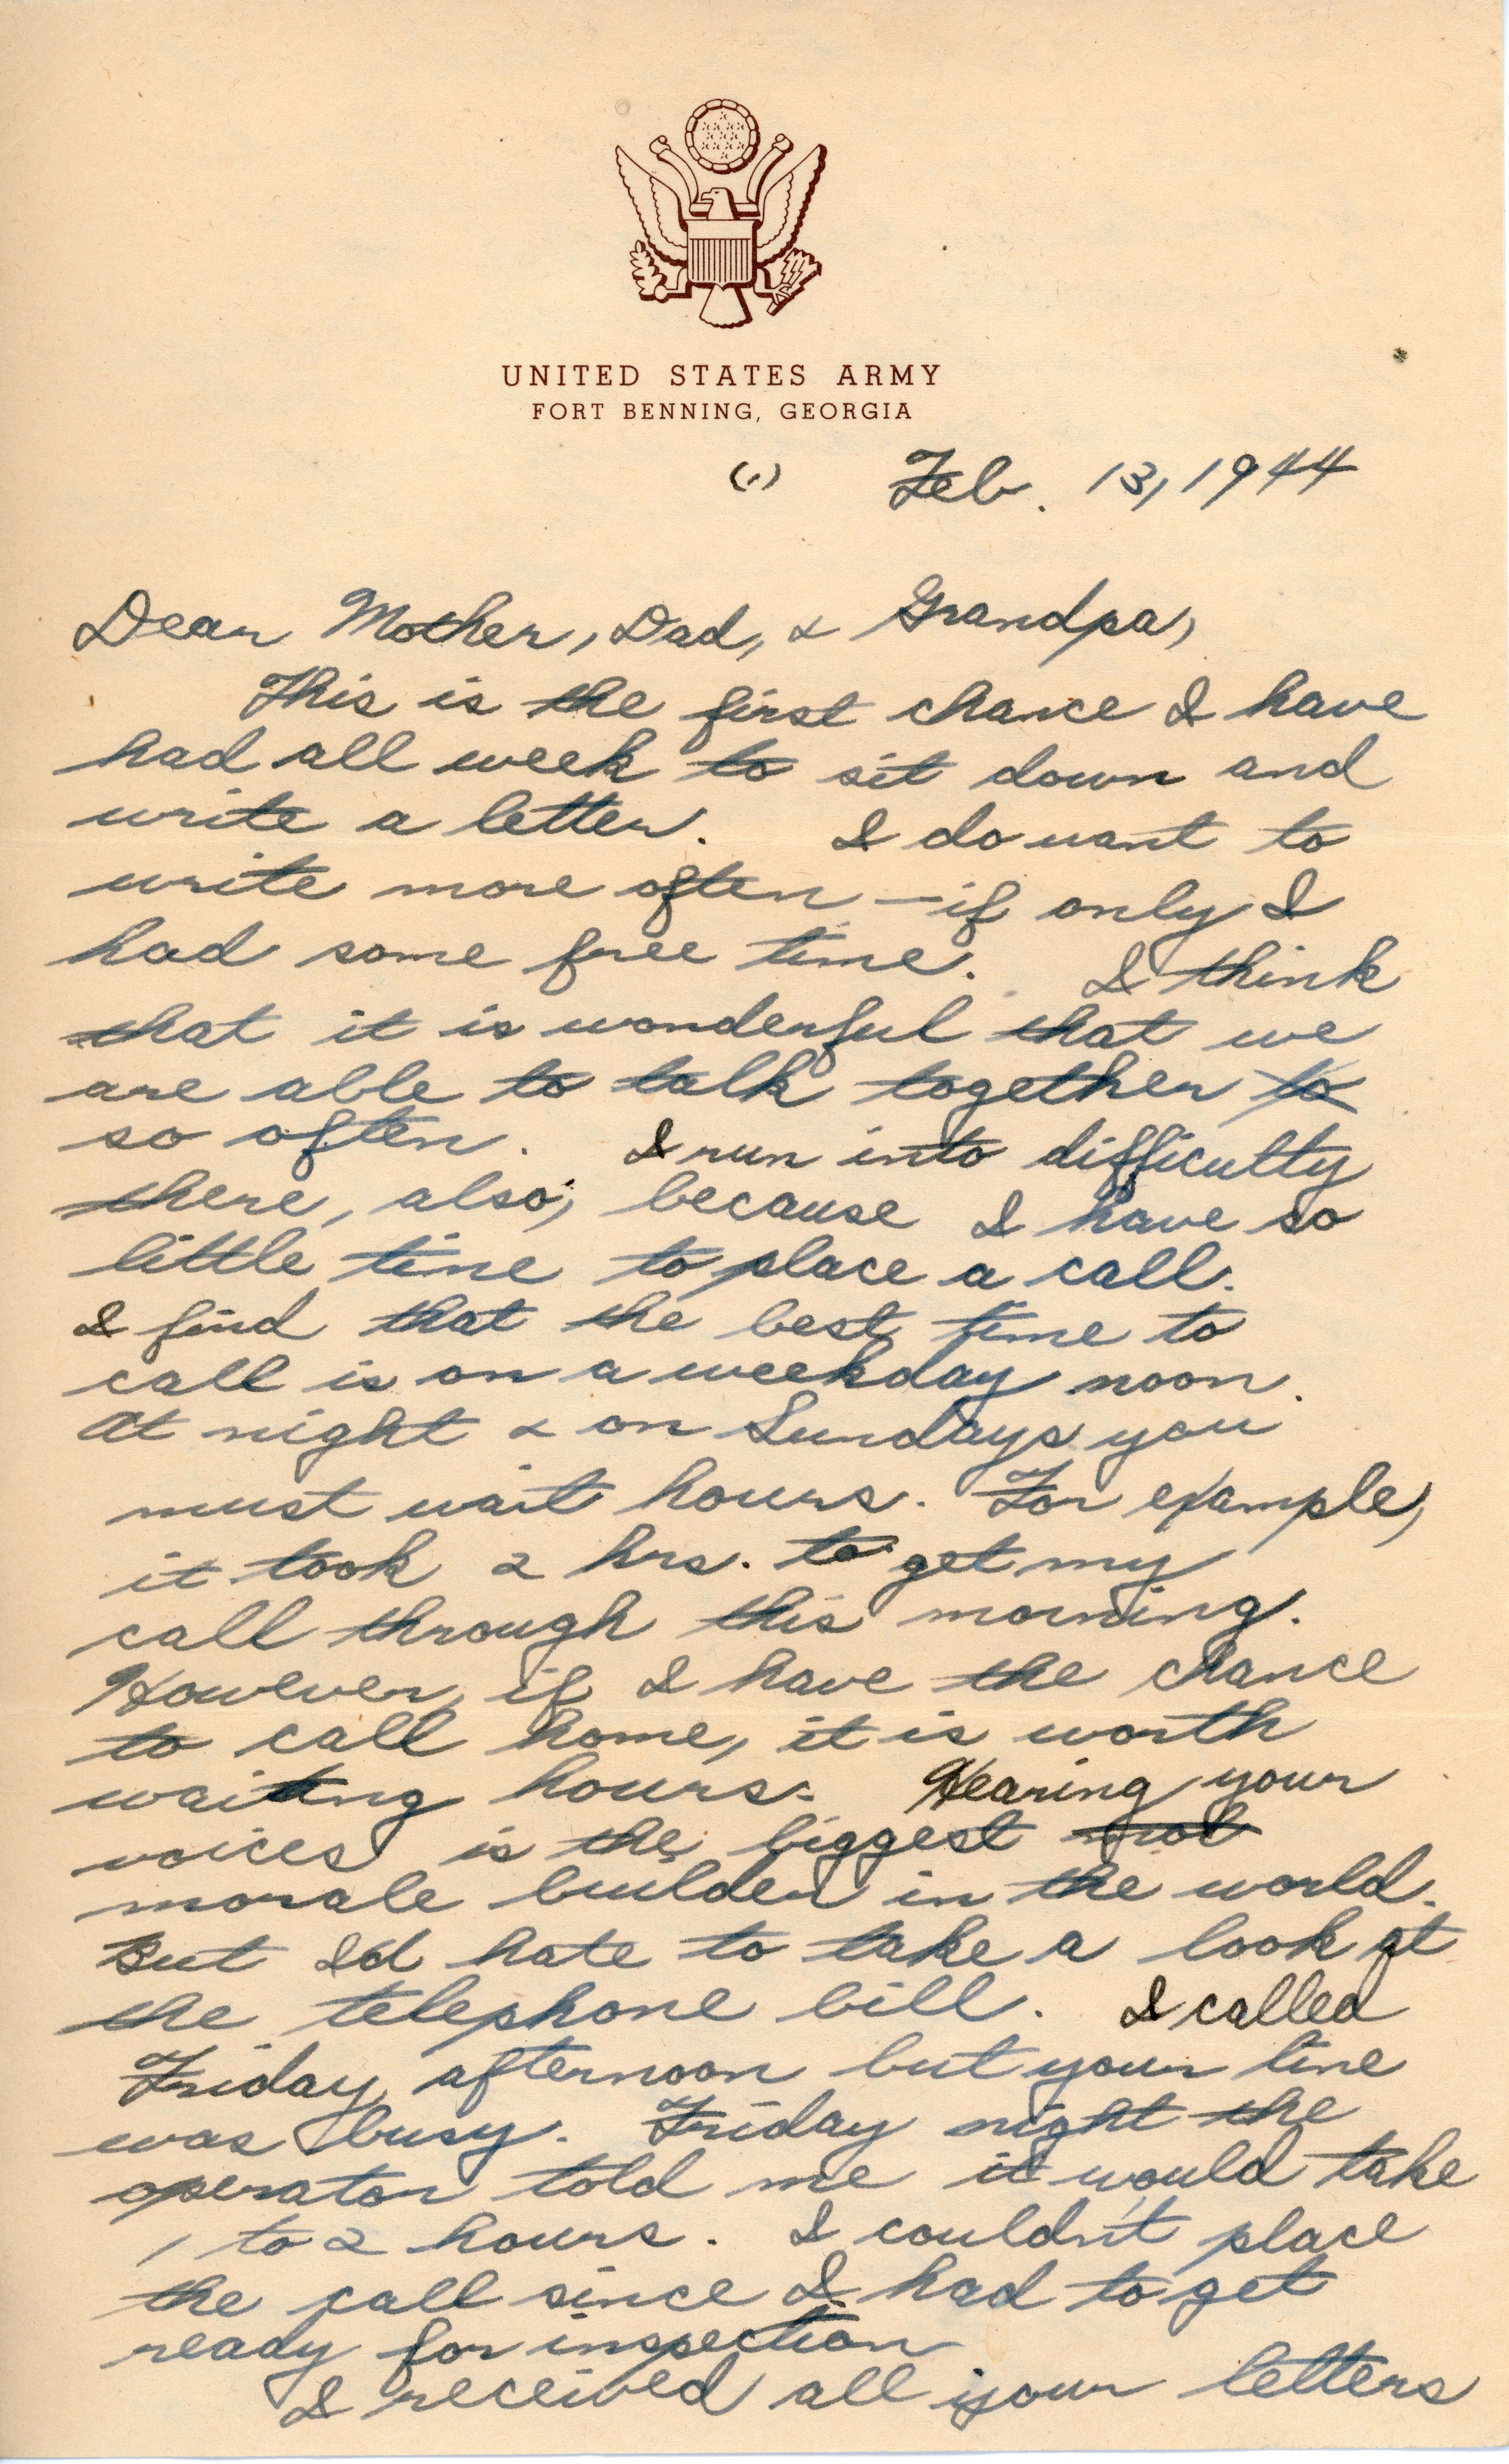 UNITED STATES ARMY
FORT BENNING, GEORGIA
(1) Feb. 13, 1944
Dear Mother, Dad, & Grandpa,
This is the first chance I have
had all week to sit down and
write a letter. I do want to
write more often — if only I
had some free time. I think
that it is wonderful that we
are able to talk together to
so often. I run into difficulty
there, also, because I have so
little time to place a call.
I find that the best time to
call is on a weekday noon.
At night & on Sundays you
must wait hours. For example,
it took 2 hrs. to get my
call through this morning.
However, if I have the chance
to call home, it is worth
waiting hours. Hearing your
voices is the biggest
morale builder in the world.
But I'd hate to take a look at
the telephone bill. I called
Friday afternoon but your line
was busy. Friday night the
operator told me it would take
1 to 2 hours. I couldn't place
the call since I had to get
ready for inspection
I received all your letters